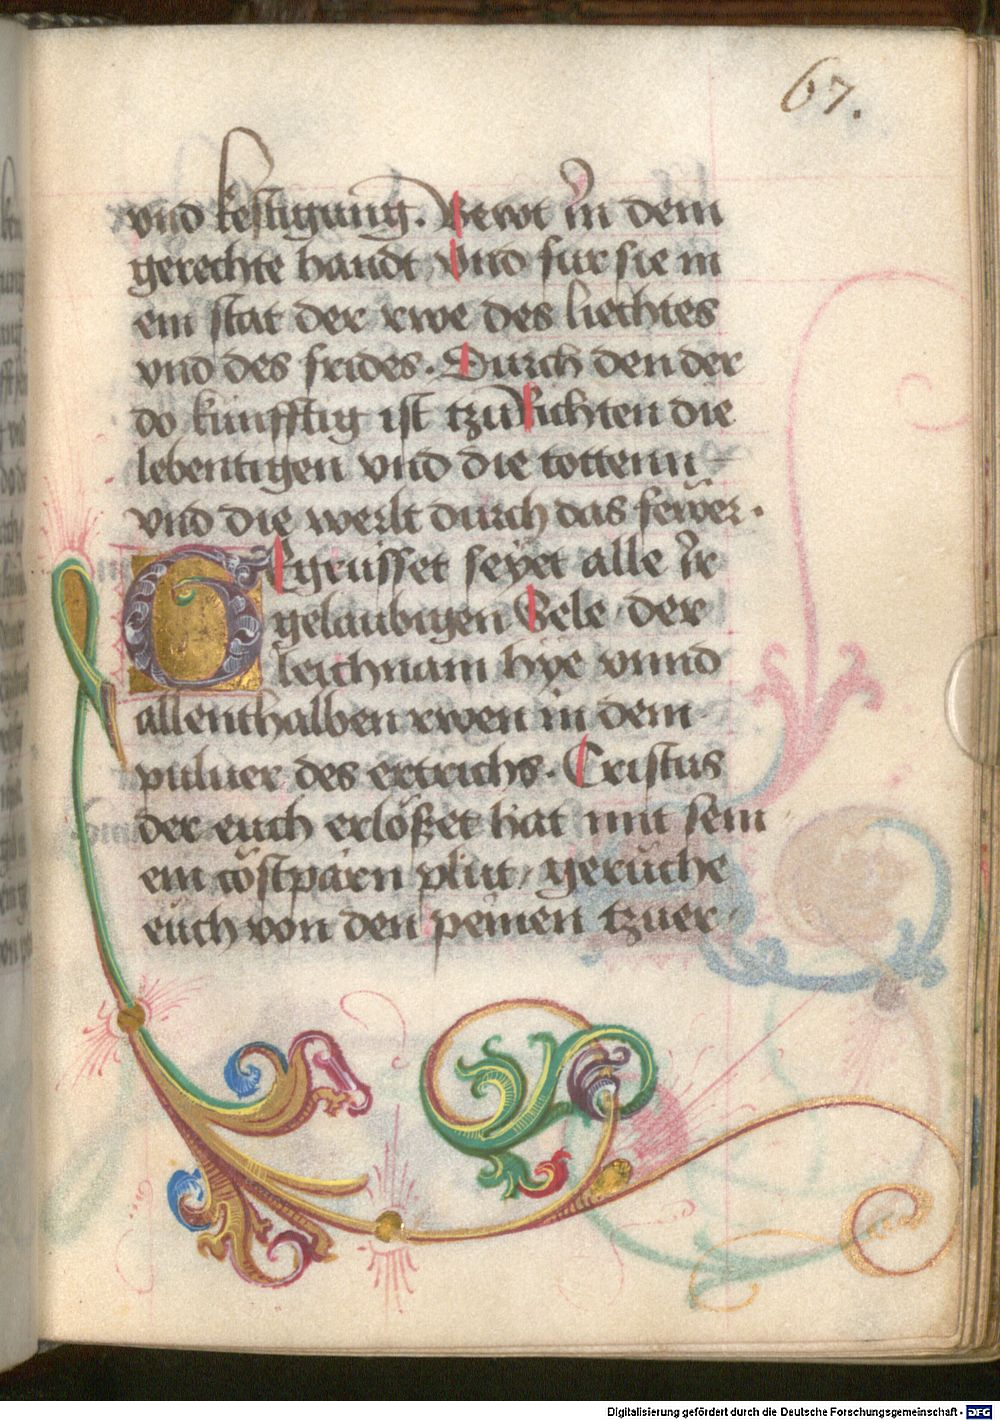 67.
vnd kestigung. Bewt in dem
gerechte handt vnd fur sie in
ein stat der rwe des liechtes
vnd des frides. Durch den der
do kunfftig ist tzu Richten die
lebentigen vnd die tottenn
vnd die werlt durch das fewer.
Gegrusset seyet alle ir
gelaubigen Sele der
leichnam hye vnnd
allenthalben rwen in dem
puluer des ertrichs. Cristus
der euch erlößet hat mit sein
ein cöstparen plut geruche
euch von den peinen tzuer
Digitalisierung gefördert durch die Deutsche Forschungsgemeinschaft - DFG